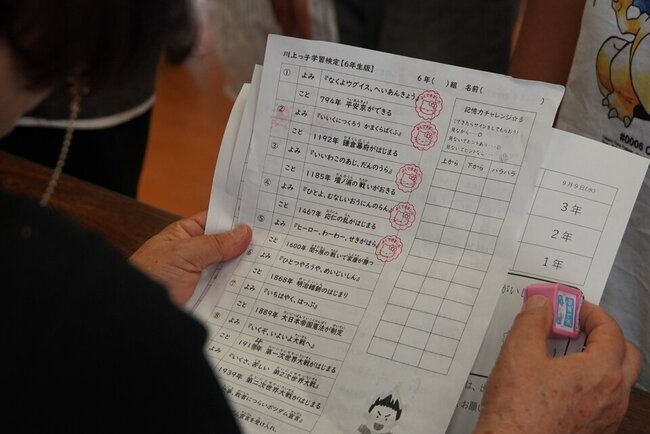 川上っ子学習検定【6年生版】
6年( )組 名前(
① よみ 『なくよウグイス、へいあんきょう』
こと 794年 平安京ができる
② よみ 『いいくにつくろう かまくらばくふ』
こと 1192年 鎌倉幕府がはじまる
③ よみ 『いいわこのあじ、だんのうら』
こと 1185年 壇ノ浦の戦いがおきる
④ よみ 『ひとよ、むなしいおうにんのらん』
こと 1467年 応仁の乱がはじまる
⑤ よみ 『ヒーロー、わーわー、せきがはら』
こと 1600年 関ヶ原の戦いで家康が勝つ
⑥ よみ 『ひとつやろうや、めいじいしん』
こと 1868年 明治維新のはじまり
⑦ よみ 『いちはやく、はっぷ』
こと 1889年 大日本帝国憲法が制定
⑧ よみ 『いくぞ、いよいよ大戦へ』
こと 第一次世界大戦がはじまる
よみ 『いくさ、苦しい 第2次世界大戦』
1939年 第二次世界大戦がはじまる
敗者につらいポツダム宣言』
宣言を受け入れ、
記憶力チャレンジ☆彡
(できたらサインをしてもらおう)
見ながら…○
見ないでヒントあり…○
見ないでヒントなし
上から 下から バラバラ
9月9日(水)
3年
2年
1年
#0006 C